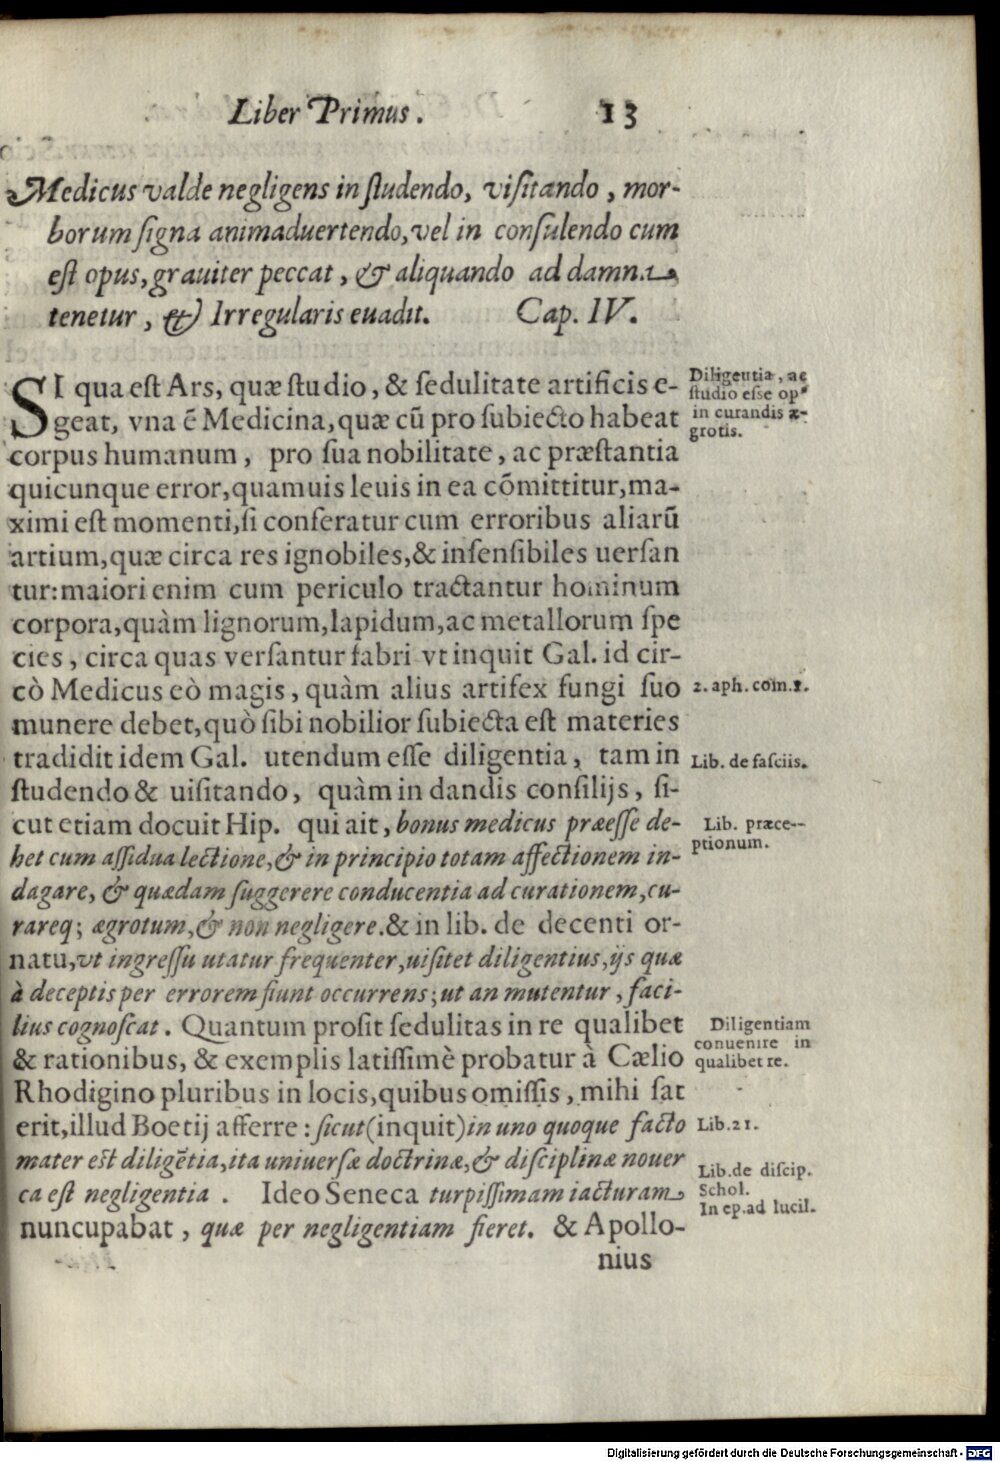 Liber Primus. 13
Medicus valde negligens in ſtudendo, viſitando, mor-
borum ſigna animaduertendo, vel in conſulendo cum
eſt opus, grauiter peccat, & aliquando ad damna
tenetur, & Irregularis euadit. Cap. IV.
SI qua eſt Ars, quæ ſtudio, & ſedulitate artificis e-
geat, vna ē Medicina, quæ cū pro ſubiecto habeat
corpus humanum, pro ſua nobilitate, ac præſtantia
quicunque error, quamuis leuis in ea cōmittitur, ma-
ximi eſt momenti, ſi conferatur cum erroribus aliarū
artium, quæ circa res ignobiles, & inſenſibiles uerſan
tur: maiori enim cum periculo tractantur hominum
corpora, quàm lignorum, lapidum, ac metallorum ſpe
cies, circa quas verſantur fabri vt inquit Gal. id cir-
cò Medicus eò magis, quàm alius artifex fungi ſuo
munere debet, quò ſibi nobilior ſubiecta eſt materies
tradidit idem Gal. utendum eſſe diligentia, tam in
ſtudendo & uiſitando, quàm in dandis conſilijs, ſi-
cut etiam docuit Hip. qui ait, bonus medicus præeſſe de-
bet cum aſſidua lectione, & in principio totam affectionem in-
dagare, & quædam ſuggerere conducentia ad curationem, cu-
rareq; ægrotum, & non negligere. & in lib. de decenti or-
natu, vt ingreſſu utatur frequenter, uiſitet diligentius, ijs quæ
à deceptis per errorem fiunt occurrens; ut an mutentur, faci-
lius cognoſcat. Quantum proſit ſedulitas in re qualibet
& rationibus, & exemplis latiſſimè probatur à Cælio
Rhodigino pluribus in locis, quibus omiſſis, mihi ſat
erit, illud Boetij afferre: ſicut (inquit) in uno quoque facto
mater eſt diligētia, ita uniuerſæ doctrinæ, & diſciplinæ nouer
ca eſt negligentia. Ideo Seneca turpiſſimam iacturam
nuncupabat, quæ per negligentiam fieret. & Apollo-
nius
Diligentia, ac
ſtudio eſſe opꝰ
in curandis æ-
grotis.
2. aph. com. 1.
Lib. de faſciis.
Lib. præce-
ptionum.
Diligentiam
conuenire in
qualibet re.
Lib. 21.
Lib. de diſcip.
Schol.
In ep. ad lucil.
Digitalisierung gefördert durch die Deutsche Forschungsgemeinschaft - DFG